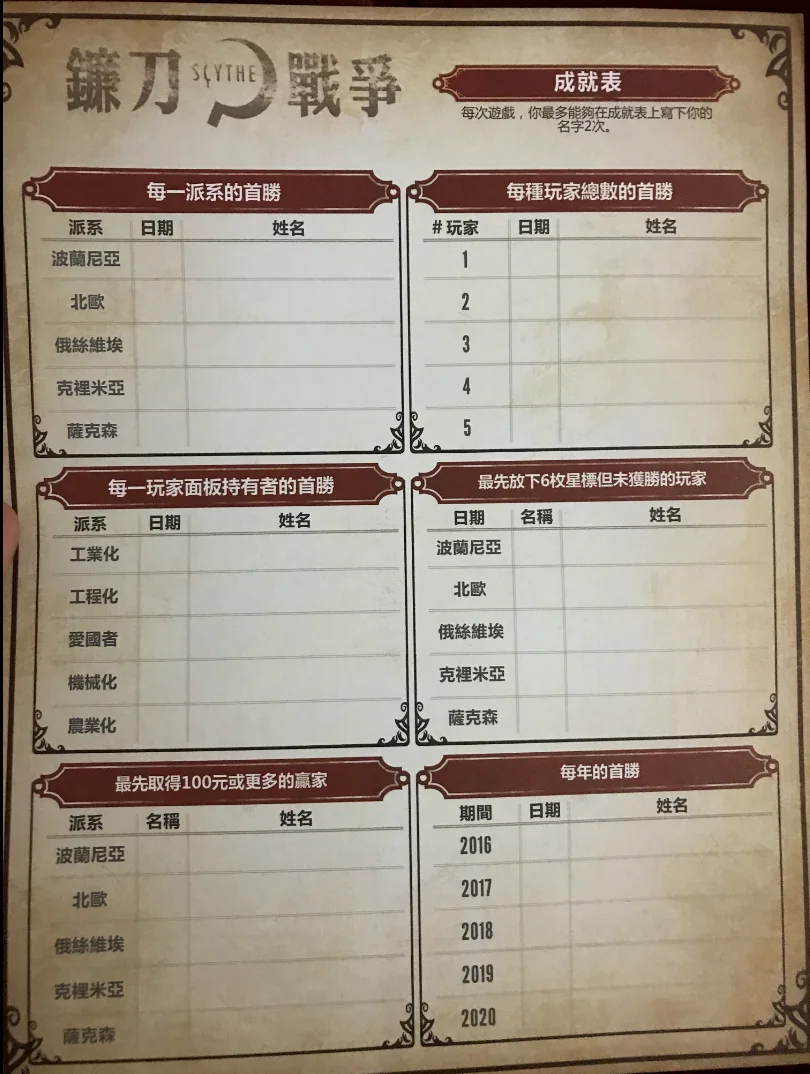 鐮刀 SCYTHE 戰爭
成就表
每次遊戲，你最多能夠在成就表上寫下你的
名字2次。
每一派系的首勝
派系 日期 姓名
波蘭尼亞
北歐
俄絲維埃
克裡米亞
薩克森
每種玩家總數的首勝
# 玩家 日期 姓名
1
2
3
4
5
每一玩家面板持有者的首勝
派系 日期 姓名
工業化
工程化
愛國者
機械化
農業化
最先放下6枚星標但未獲勝的玩家
日期 名稱 姓名
波蘭尼亞
北歐
俄絲維埃
克裡米亞
薩克森
最先取得100元或更多的贏家
派系 名稱 姓名
波蘭尼亞
北歐
俄絲維埃
克裡米亞
薩克森
每年的首勝
期間 日期 姓名
2016
2017
2018
2019
2020